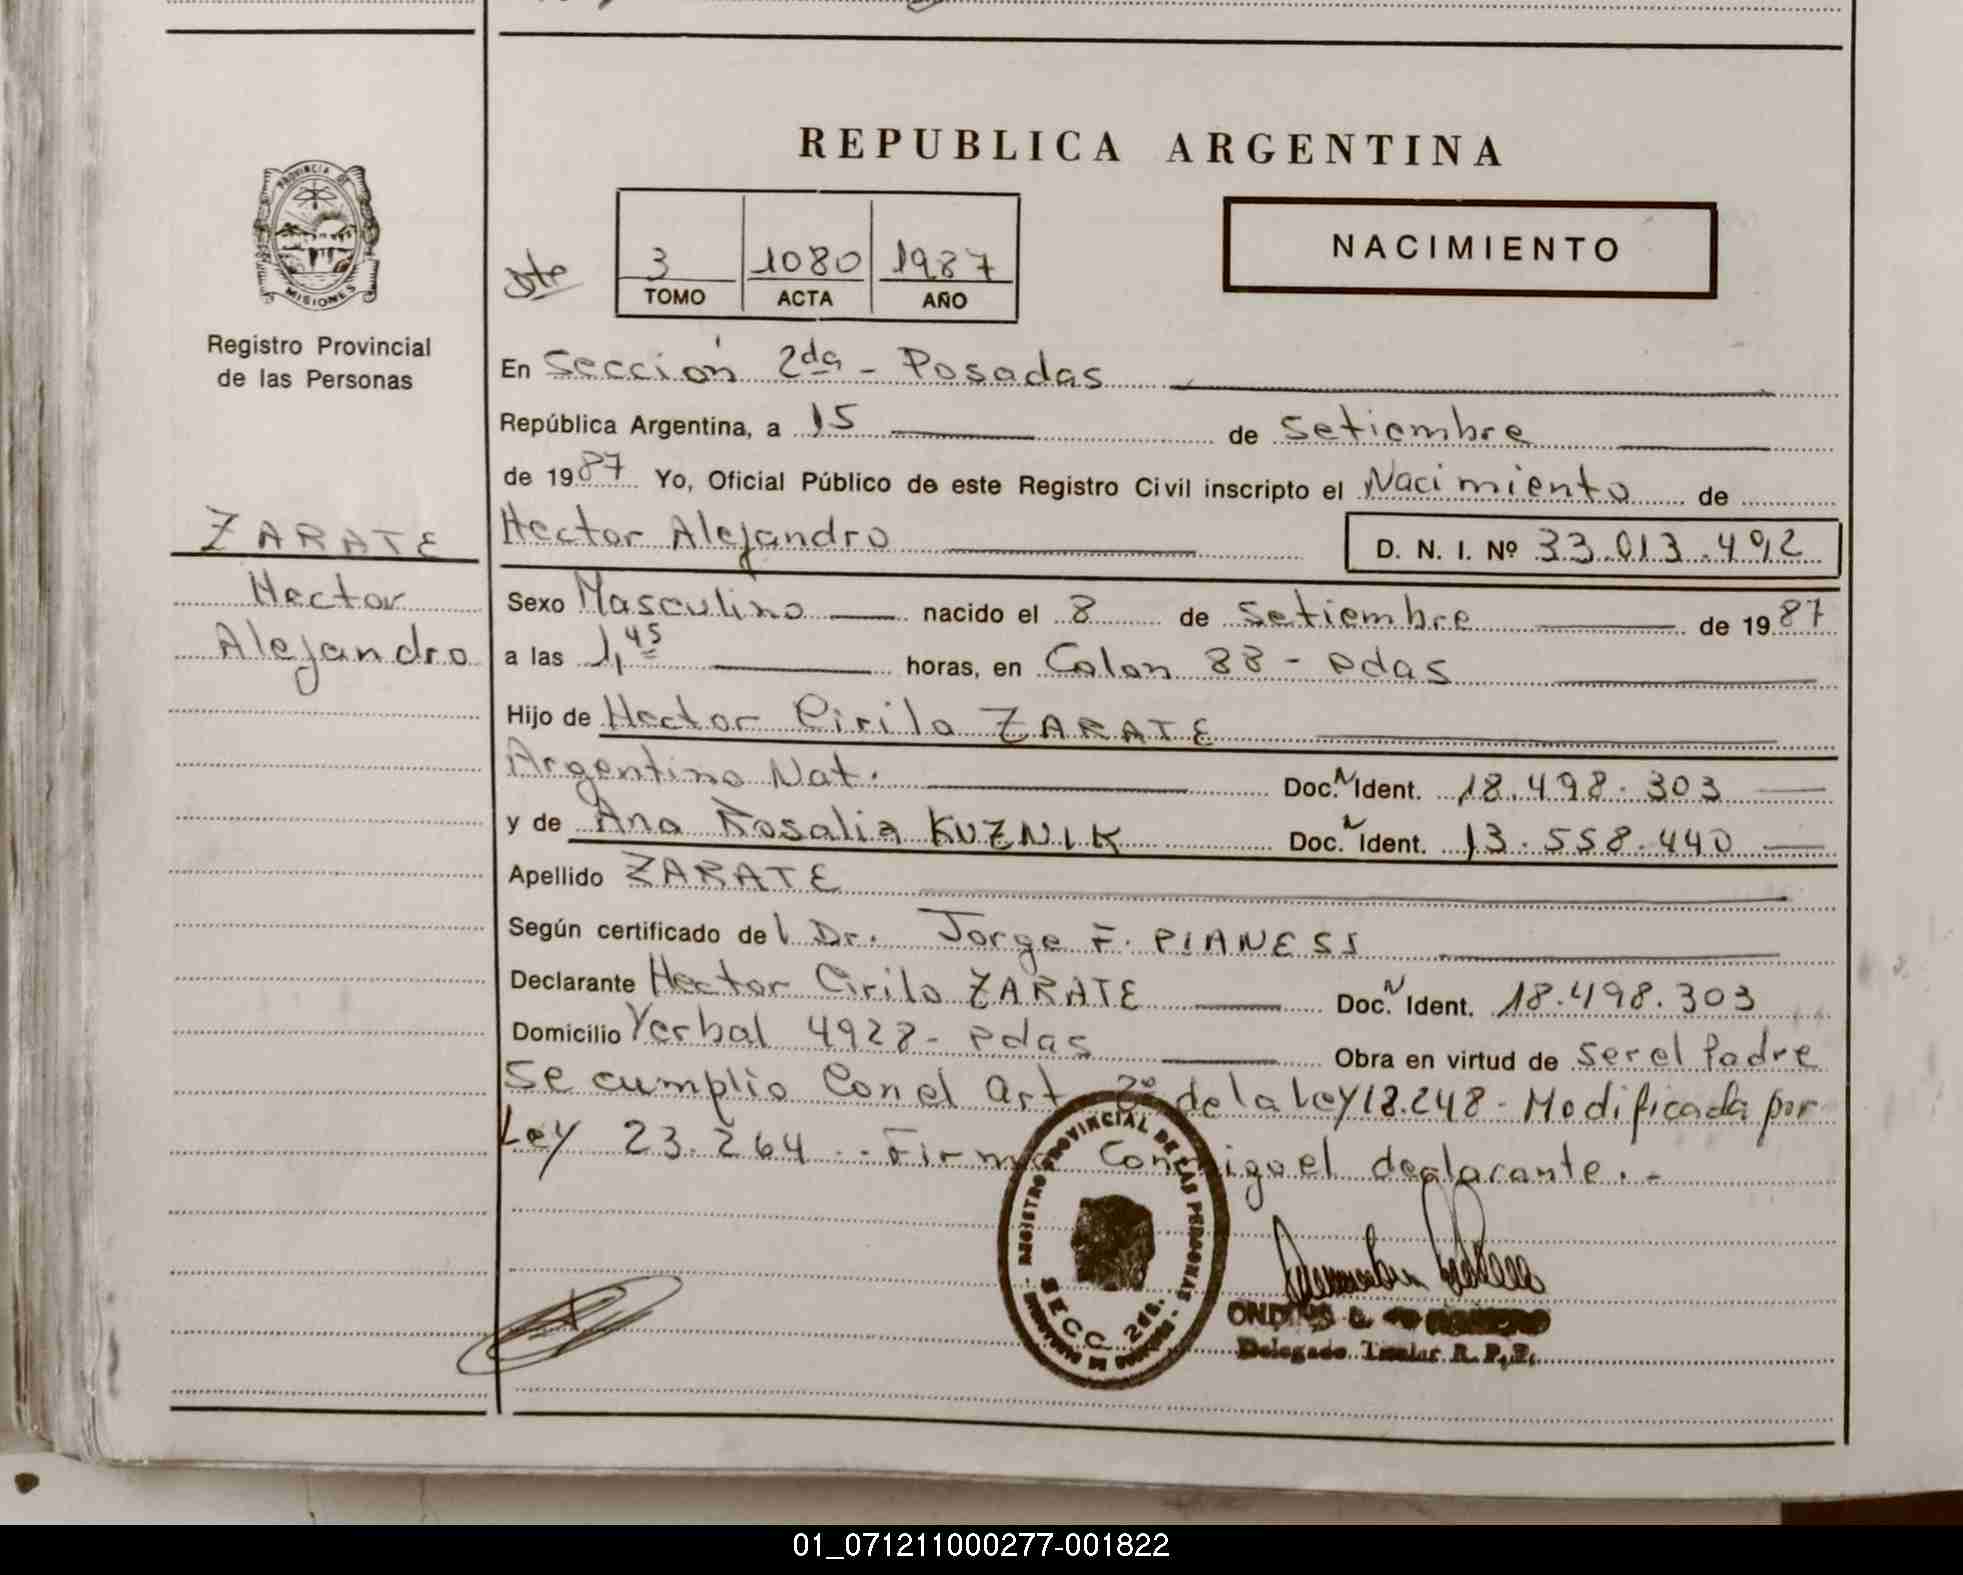 REPUBLICA ARGENTINA
PROVINCIA DE
MISIONES
Registro Provincial
de las Personas
3 1080 1987
TOMO ACTA AÑO
NACIMIENTO
En Sección 2da - Posadas
República Argentina, a 15 de Setiembre
de 1987 Yo, Oficial Público de este Registro Civil inscripto el Nacimiento de
ZARATE
Hector
Alejandro
Hector Alejandro D. N. I. Nº 33.013.492
Sexo Masculino nacido el 8 de Setiembre de 1987
a las 1,45 horas, en Colon 88 - Pdas
Hijo de Hector Cirilo ZARATE
Argentino Nat. Doc. N Ident. 18.498.303
y de Ana Rosalia KUZNIK Doc. N Ident. 13.558.440
Apellido ZARATE
Según certificado del Dr. Jorge F. PIANESI
Declarante Hector Cirilo ZARATE Doc. N Ident. 18.498.303
Domicilio Yerbal 4928 - Pdas Obra en virtud de Ser el Padre
Se cumplio Con el Art. 2º de la Ley 18.248 - Modificada por
Ley 23.264 .- Firma Conmigo el declarante. -
REGISTRO PROVINCIAL DE LAS PERSONAS
SECC. 2da.
Delegado Titular R. P. P.
01_071211000277-001822